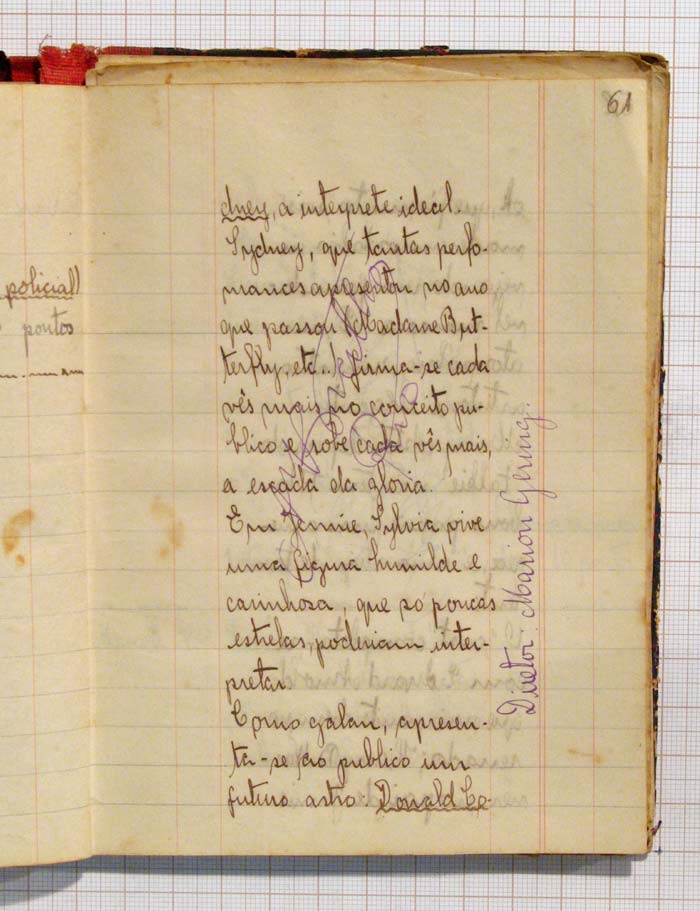 61
policial)
pontos
dney, a interprete ideal.
Sydney, que tantas perfo-
mances apresentou no ano
que passou (Madame But-
terfly, etc..) firma-se cada
vês mais no conceito pu-
blico e sobe cada vês mais,
a escada da gloria.
Em Jennie, Sylvia vive
uma figura humilde e
carinhosa, que só poucas
estrelas, poderiam inter-
pretar
Como galan, apresen-
ta-se ao publico um
futuro astro: Donald Co-
Diretor: Marion Gering.